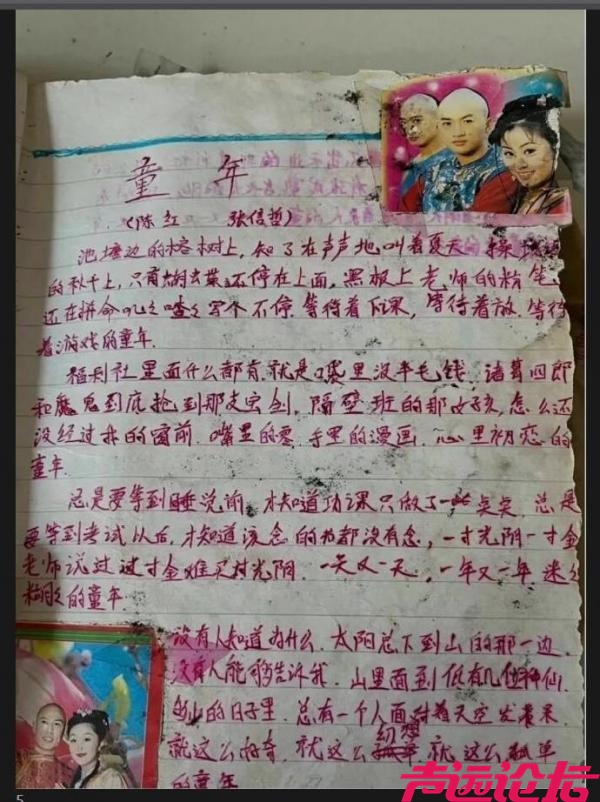 童年
(陈红 张信哲)
池塘边的榕树上,知了在声声地叫着夏天 操场边
的秋千上,只有蝴蝶还停在上面,黑板上老师的粉笔
还在拼命叽々喳々写个不停 等待着下课,等待着放 等待
着游戏的童年
福利社里面什么都有 就是口袋里没半毛钱 诸葛四郎
和魔鬼到底抢到那支宝剑,隔壁班的那女孩 怎么还
没经过我的窗前 嘴里的零 手里的漫画 心里初恋的
童年
总是要等到睡觉前 才知道功课只做了一点点 总是
要等到考试以后,才知道该念的书都没有念,一寸光阴一寸金
老师说过 寸金难买寸光阴 一天又一天,一年又一年 迷々
糊々的童年
没有人知道为什么 太阳总下到山的那一边
没有人能够告诉我 山里面到低有几位神仙
的日子里 总有一个人面对着天空发呆
就这么好奇 就这么幻想 就这么孤单
的童年
声远论坛
5